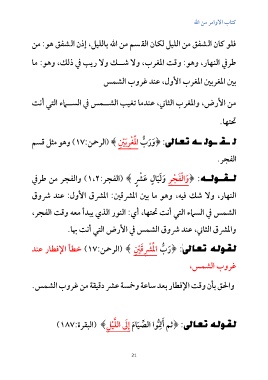 كتاب الأوامر من الله
فلو كان الشفق من الليل لكان القسم من الله بالليل، إذن الشفق هو: من
طرفي النهار، وهو: وقت المغرب، ولا شك ولا ريب في ذلك، وهو: ما
بين المغربين المغرب الأول، عند غروب الشمس
من الأرض، والمغرب الثاني، عندما تغيب الشمس في السماء التي أنت
تحتها.
لقوله تعالى: ﴿وَرَبُّ المَغْرِبَيْنِ﴾ (الرحمن:١٧) وهو مثل قسم
الفجر.
لقوله: ﴿وَالْفَجْرِ وَلَيَالٍ عَشْرٍ﴾ (الفجر:١،٢) والفجر من طرفي
النهار، ولا شك فيه، وهو ما بين المشرقين: المشرق الأول: عند شروق
الشمس في السماء التي أنت تحتها، أي: النور الذي يبدأ معه وقت الفجر،
والمشرق الثاني، عند شروق الشمس في الأرض التي أنت بها.
لقوله تعالى: ﴿رَبُّ المَشْرِقَيْنِ﴾ (الرحمن:١٧) خطأ الإفطار عند
غروب الشمس،
والحق بأن وقت الإفطار بعد ساعة وخمسة عشر دقيقة من غروب الشمس.
لقوله تعالى: ﴿ثم أَتِمُّوا الصِّيَامَ إِلَى اللَّيْلِ﴾ (البقرة:١٨٧)
-21-